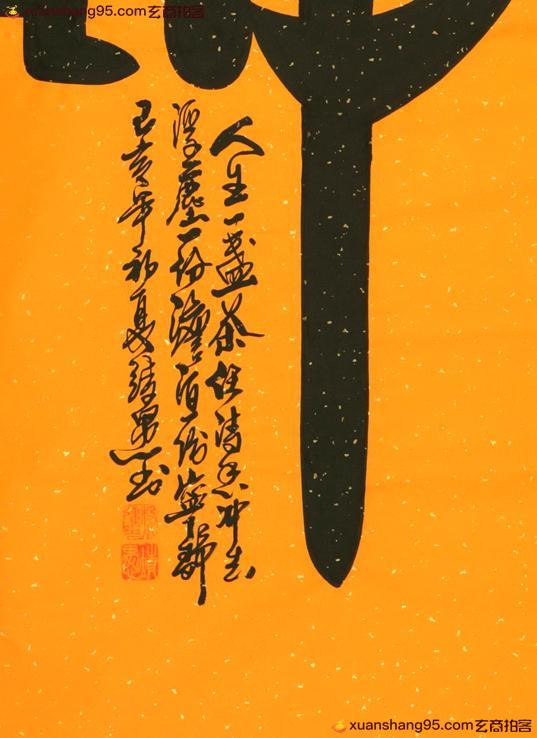 xuanshang95.com 玄商拍客
人生一盏茶任清香冲去
浮尘一份澹泊一份宁静
己亥年初夏
xuanshang95.com 玄商拍客